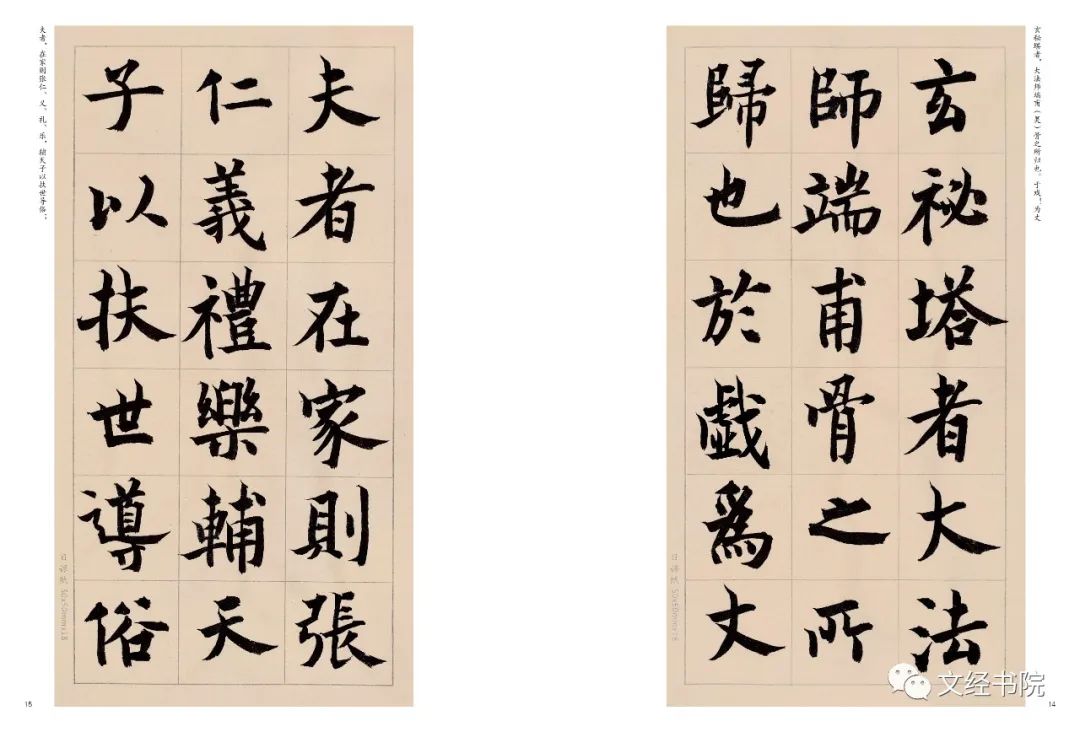 玄秘塔者，大法师端甫（灵）骨之所归也。于戏！为丈
玄祕塔者大法
師端甫骨之所
歸也於戲爲丈
日课纸 50x50mmx18
14
夫者，在家则张仁、义、礼、乐，辅天子以扶世导俗；
夫者在家則張
仁義禮樂輔天
子以扶世導俗
日课纸 50x50mmx18
15
文经书院